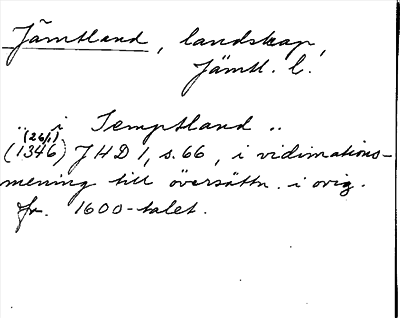 Jämtland, landskap,
Jämtl. l.
.. i Jemptland ..
(26/1)
(1346) JHD 1, s. 66, i vidimations-
mening till översättn. i orig.
fr. 1600-talet.